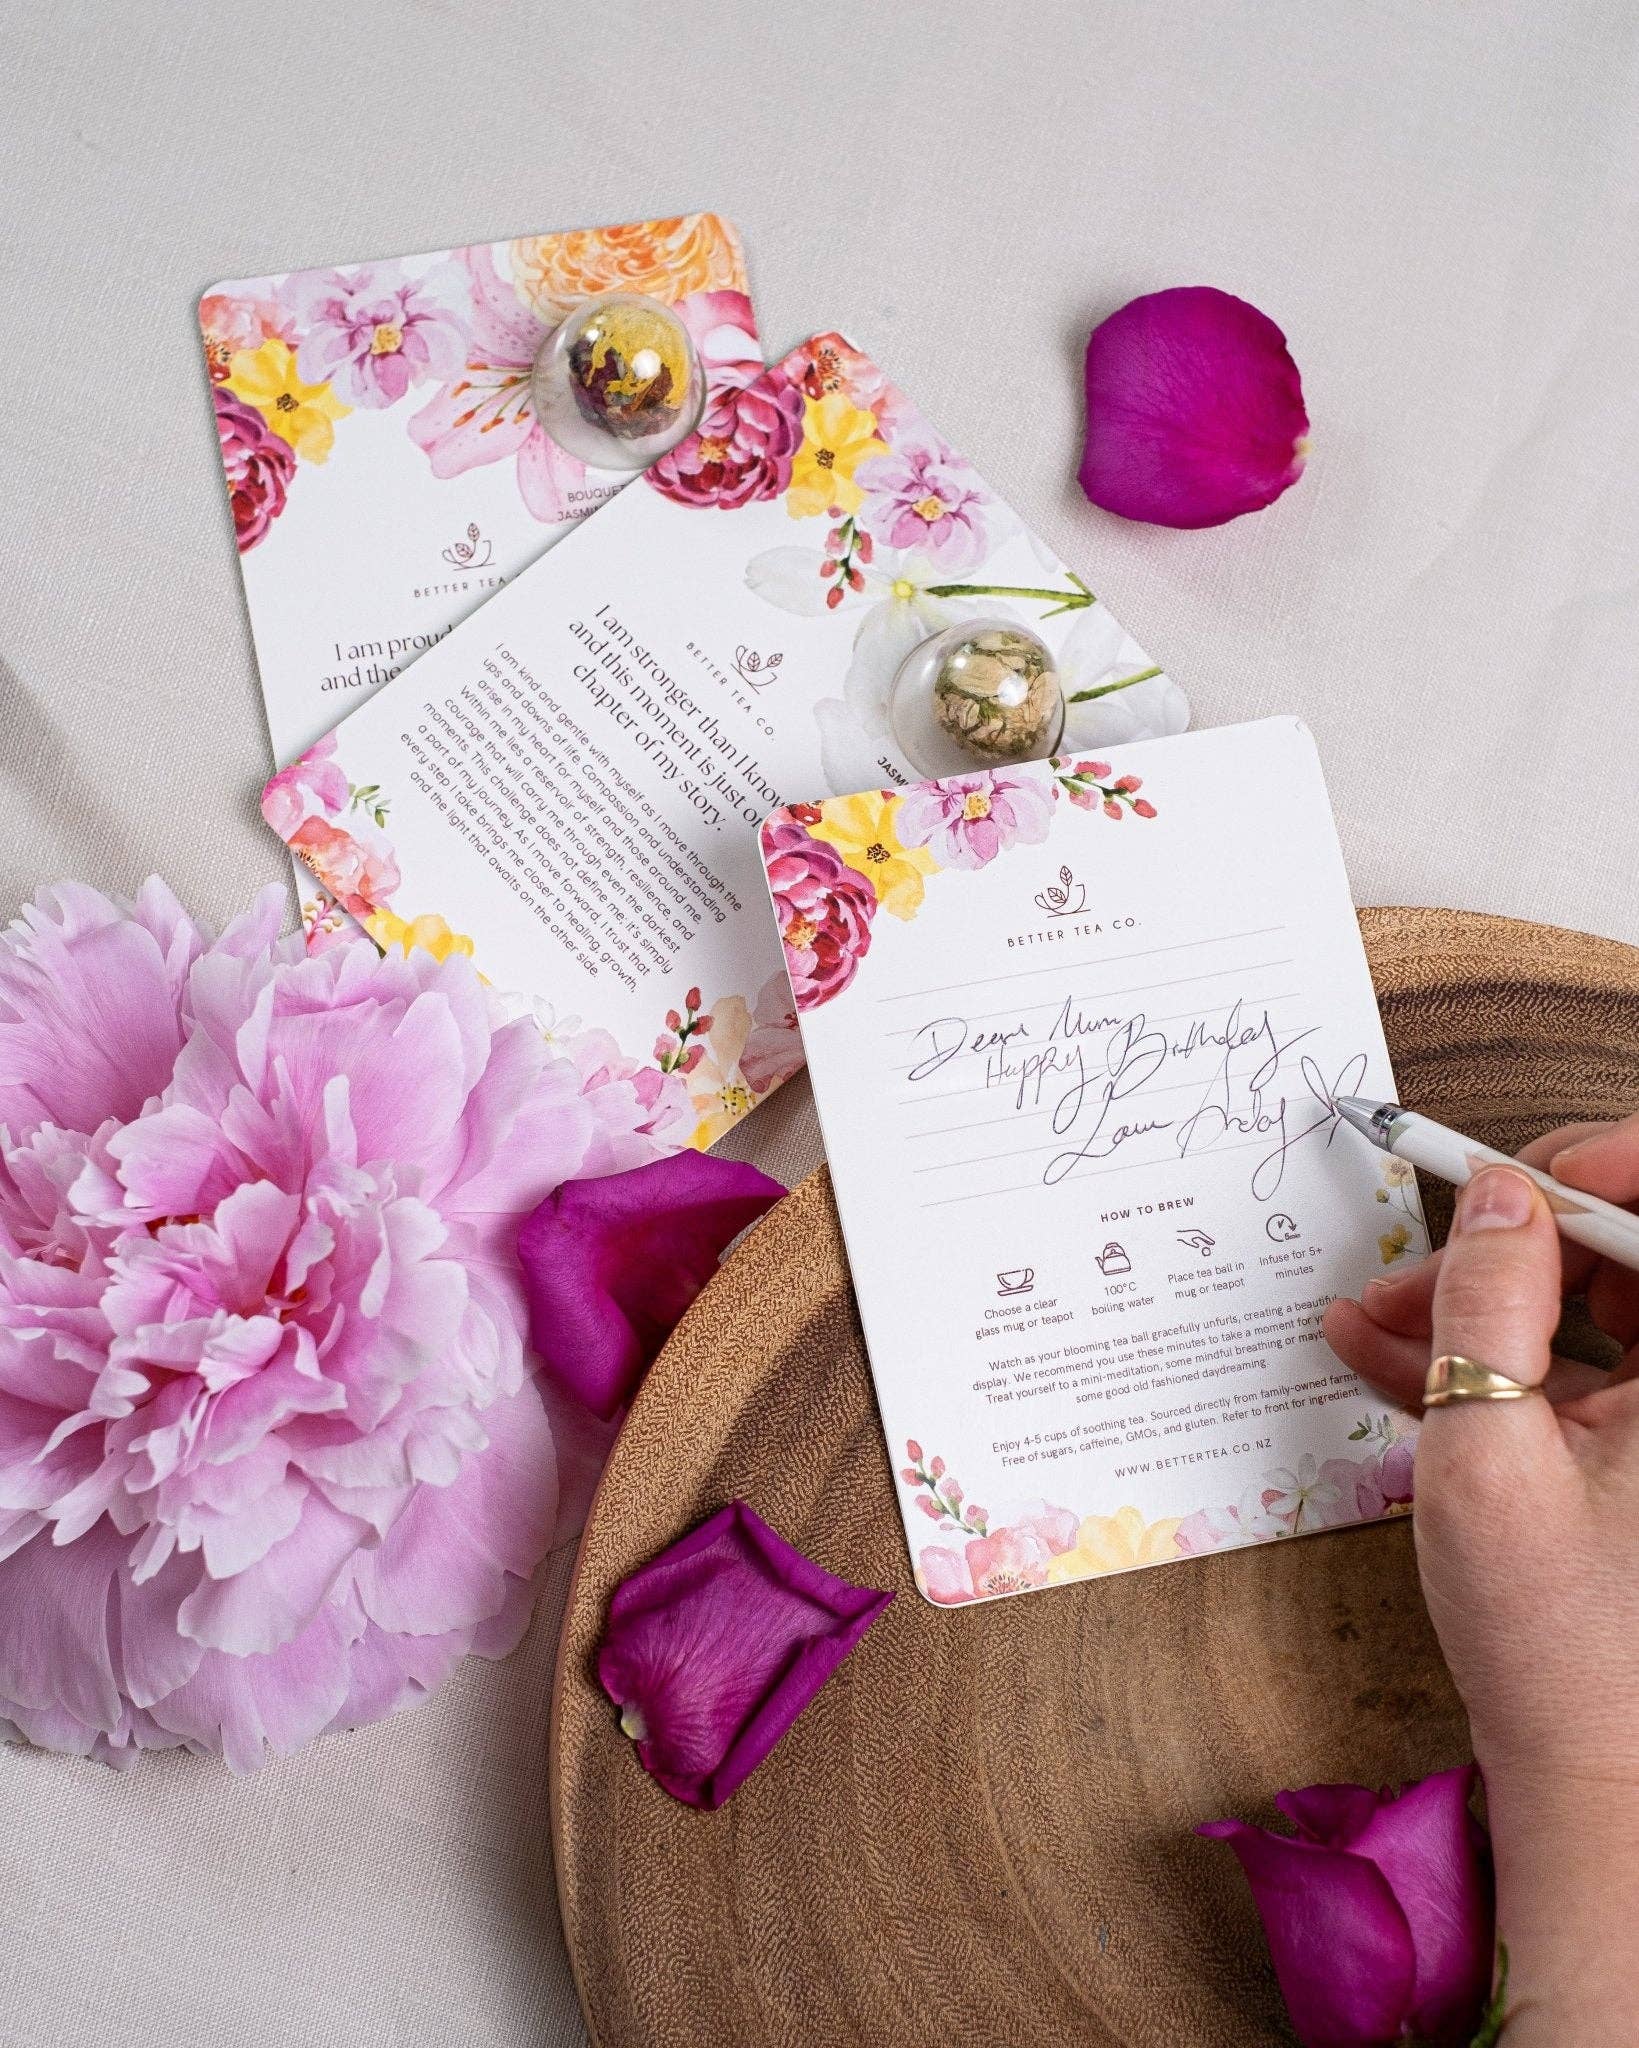 BOUQUET
BETTER TEA
I am proud
and the
BETTER TEA CO.
I am stronger than I know
and this moment is just
chapter of my story.
I am kind and gentle with myself as I move through the
ups and downs of life. Compassion and understanding
arise in my heart for myself and those around me
Within me lies a reservoir of strength, resilience, and
courage that will carry me through even the darkest
moments. This challenge does not define me; it's simply
a part of my journey. As I move forward, I trust that
every step I take brings me closer to healing, growth,
and the light that awaits on the other side.
BETTER TEA CO.
Dear Mum
Happy Birthday
Love
HOW TO BREW
5min
Choose a clear
glass mug or teapot
100°C
boiling water
Place tea ball in
mug or teapot
Infuse for 5+
minutes
Watch as your blooming tea ball gracefully unfurls, creating a beautiful
display. We recommend you use these minutes to take a moment for
Treat yourself to a mini-meditation, some mindful breathing or maybe
some good old fashioned daydreaming.
Enjoy 4-5 cups of soothing tea. Sourced directly from family-owned farms
Free of sugars, caffeine, GMOs, and gluten. Refer to front for ingredient.
WWW.BETTERTEA.CO.NZ